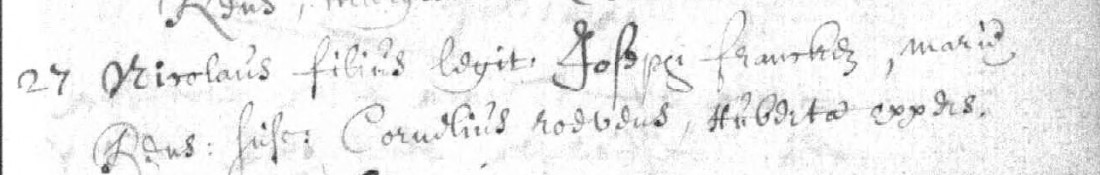 27 Nicolaus filius legit: Joseph franckz, mariæ
susc: Cornelius roeveus, Huberta